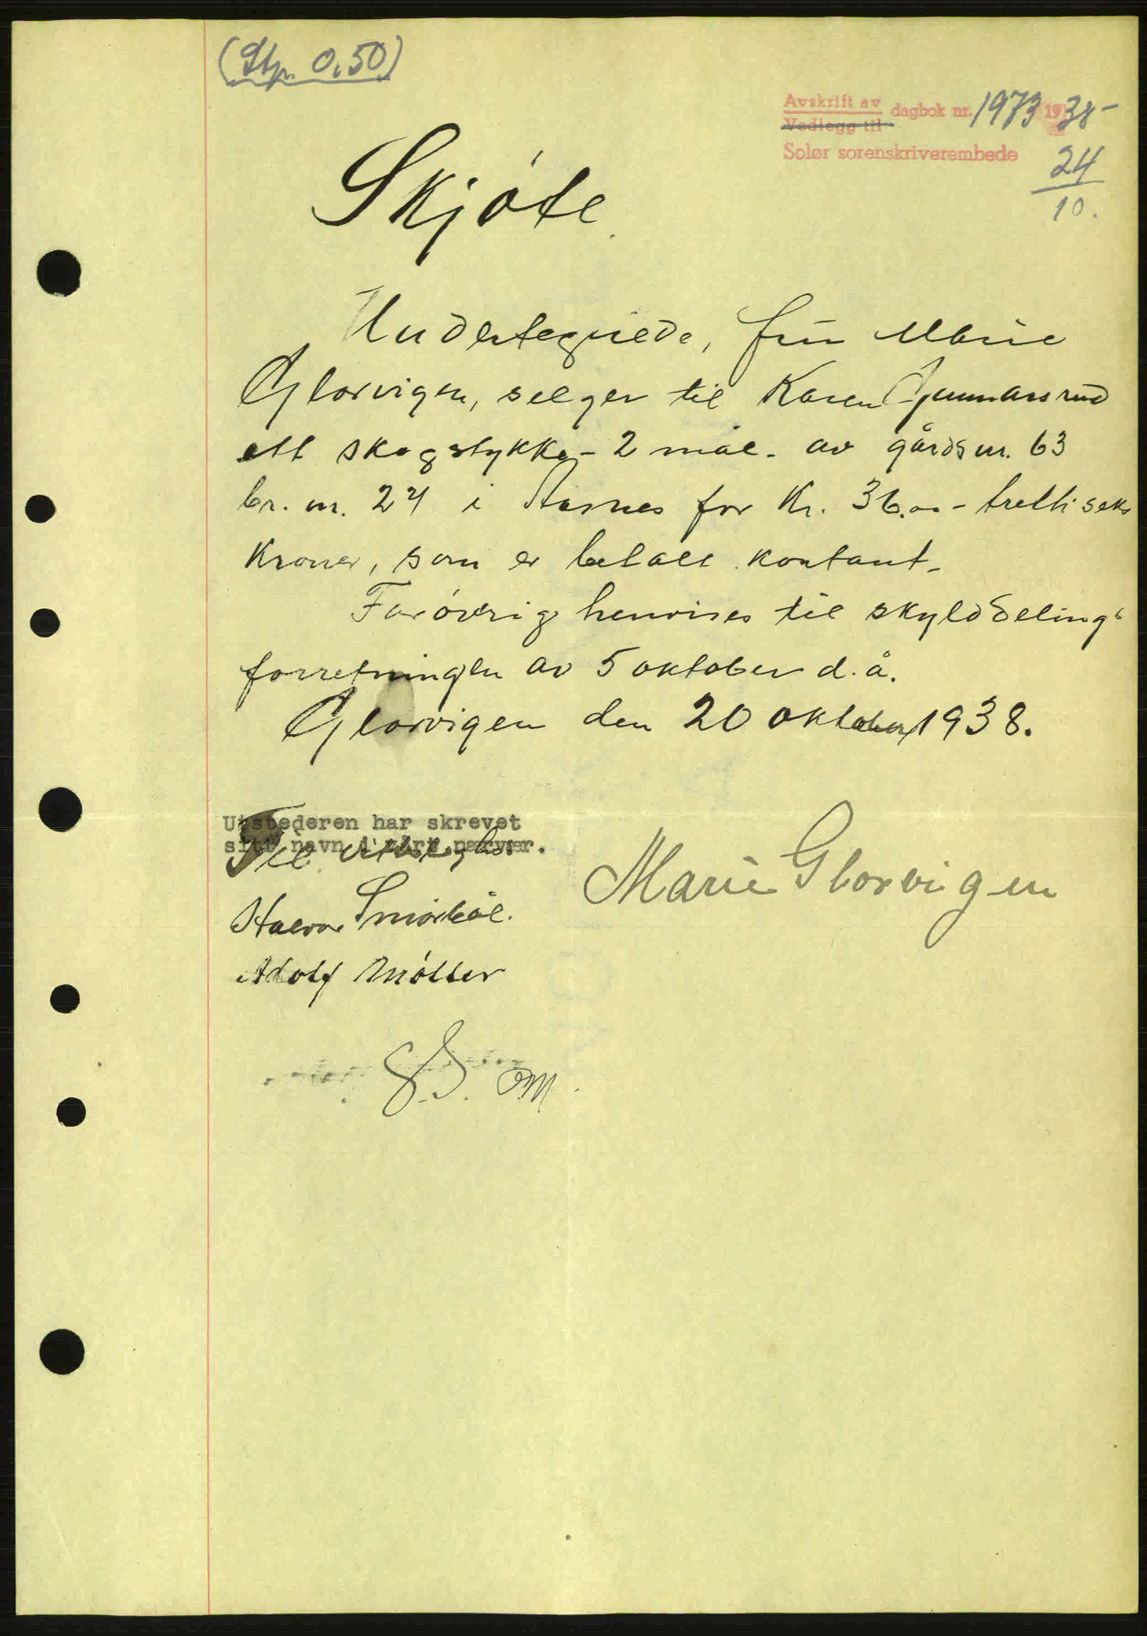 (Stp. 0,50)
Avskrift av
Vedlegg til
dagbok nr. 1973 1938-
Solør sorenskriverembede
24
10.
Skjøte
Undertegnede, fru Marie
Glorvigen, selger til Karen Gunnarsrud
ett skogstykke - 2 mål - av gårdsnr. 63
br. nr. 24 i Aasnes for Kr. 36.00 - trettiseks
Kroner, som er betalt kontant.
Forøvrig henvises til skylddelings
forretningen av 5 oktober d.å.
Glorvigen den 20 oktober 1938.
Utstederen har skrevet
sitt navn i vårt nærvær.
Til vitterlighet:
Marie Glorvigen
Halvor Smørbøl.
Adolf Møller